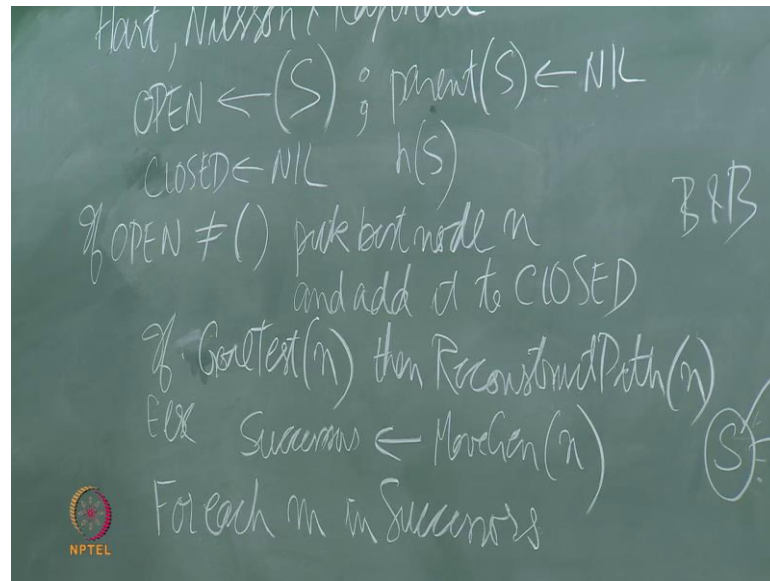 Hart, Nilsson &
OPEN ← (S) ; parent(S) ← NIL
CLOSED ← NIL h(S)
B&B
If OPEN ≠ () pick best node n
and add it to CLOSED
If GoalTest(n) then ReconstructPath(n)
Else Successors ← MoveGen(n)
S
For each m in Successors
NPTEL